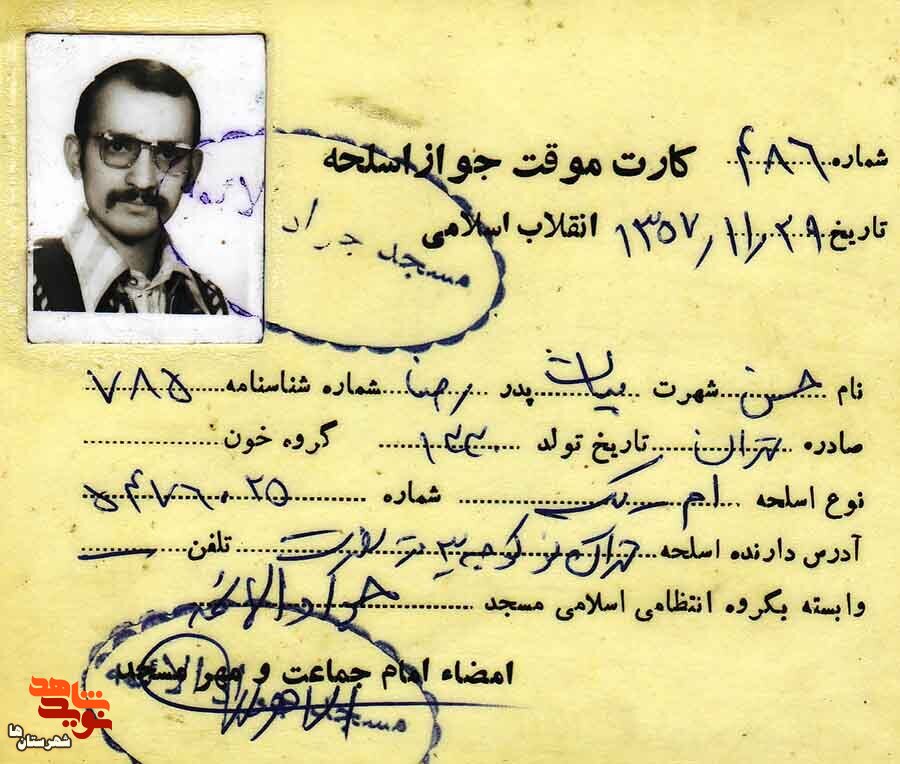 شماره ۴۸۶ کارت موقت جواز اسلحه
تاریخ ۱۳۵۷/۱۱/۲۹ انقلاب اسلامی
مسجد جواد الائمه
نام حسن شهرت بیات پدر رضا شماره شناسنامه ۷۸۵
صادره تهران تاریخ تولد ۱۳۳۰ گروه خون
نوع اسلحه ام یک شماره
آدرس دارنده اسلحه تهران تلفن
وابسته بگروه انتظامی اسلامی مسجد جواد الائمه
امضاء امام جماعت و مهر مسجد
مسجد
نوید شاهد
شهرستان‌ها